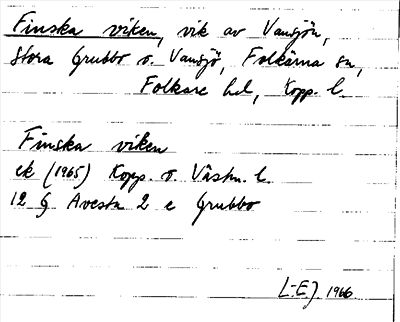 Finska viken, vik av Vansjön,
Stora Grubbo o. Vansjö, Folkärna sn,
Folkare hd, Kopp. l.
Finska viken
ek (1965) Kopp. o. Västm. l.
12 G Avesta 2 e Grubbo
L-E.J. 1966